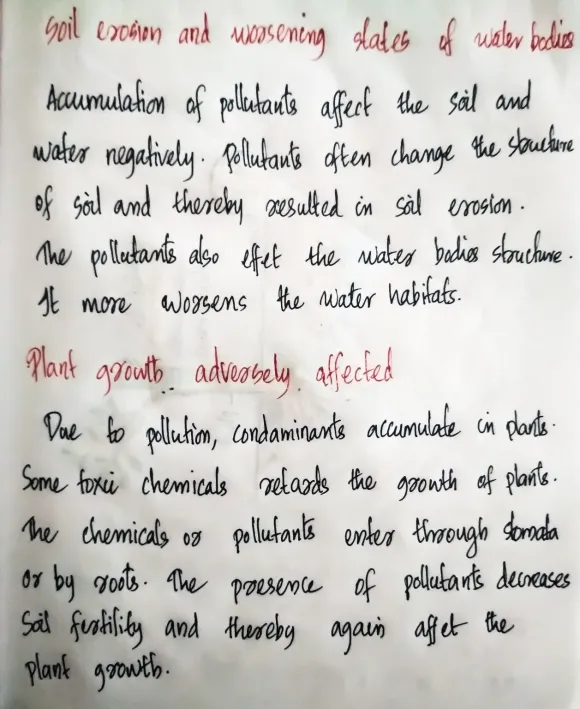 Soil erosion and worsening states of water bodies
Accumulation of pollutants affect the soil and
water negatively. Pollutants often change the structure
of soil and thereby resulted in soil erosion.
The pollutants also effet the water bodies structure.
It more worsens the water habitats.
Plant growth adversely affected
Due to pollution, condaminants accumulate in plants.
Some toxic chemicals retards the growth of plants.
The chemicals or pollutants enter through stomata
or by roots. The presence of pollutants decreases
Soil fertility and thereby again affet the
plant growth.